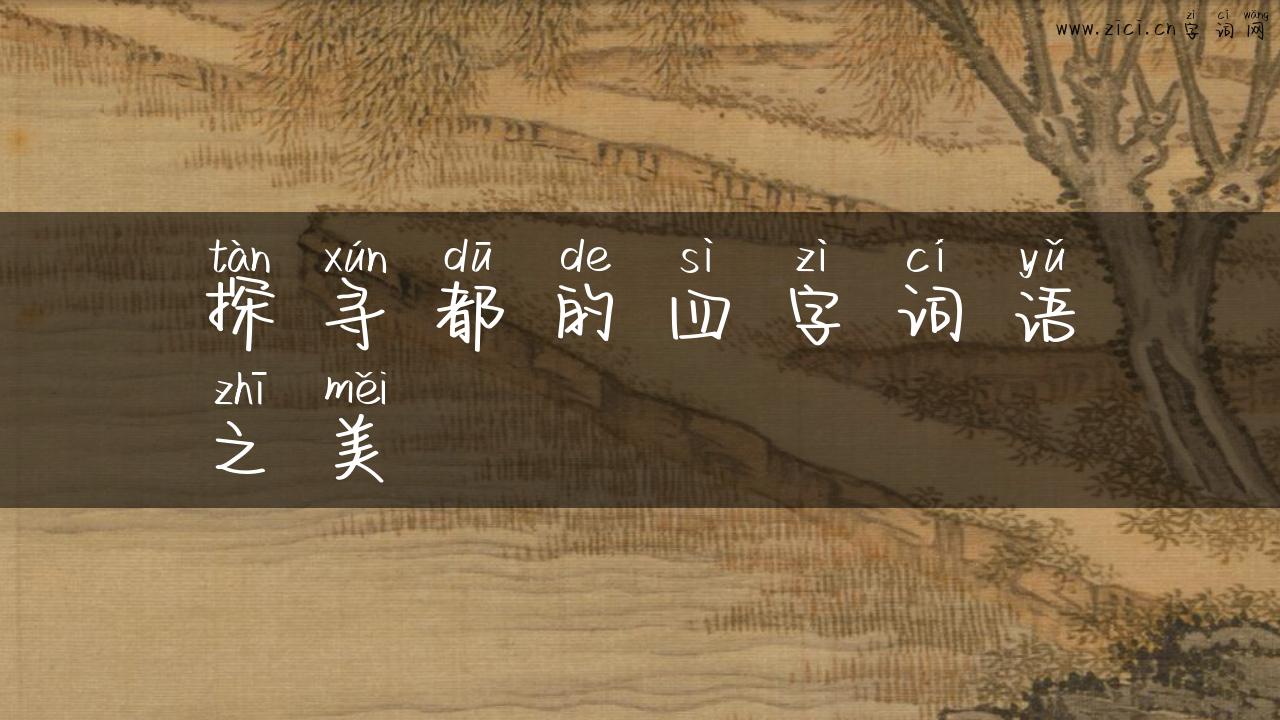 zì cí wǎng
www.zici.cn字词网
tàn xún dū de sì zì cí yǔ
探寻都的四字词语
zhī měi
之美